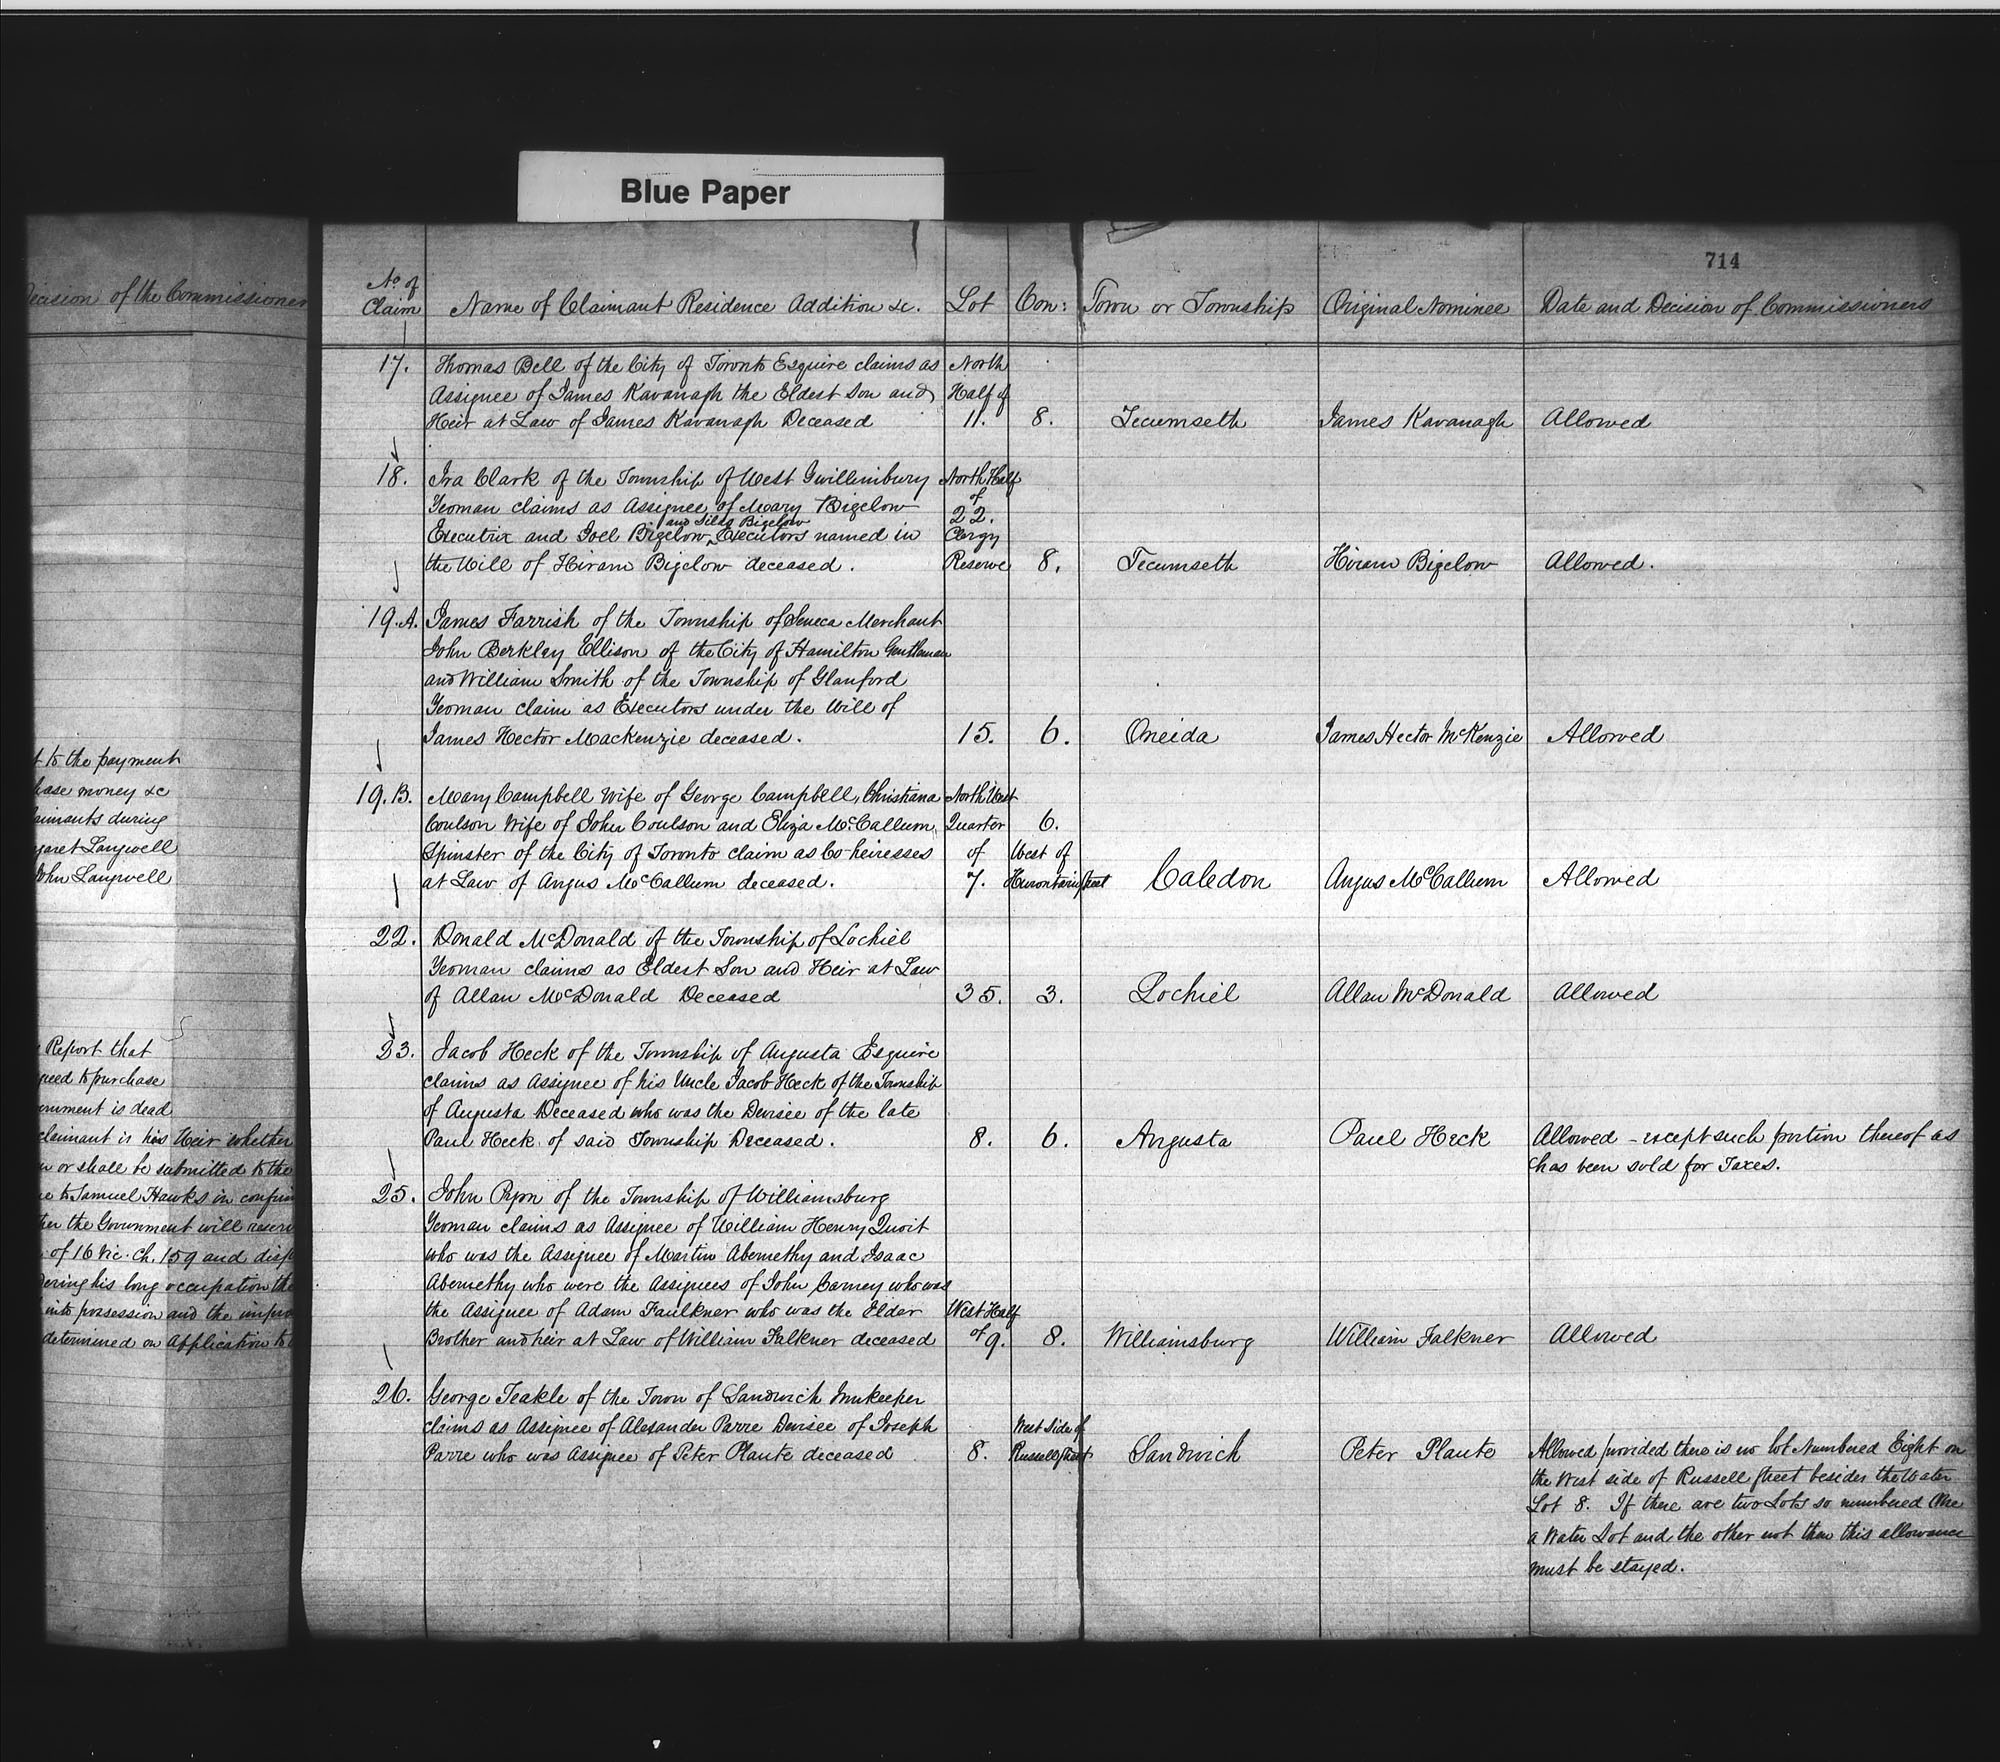 Blue Paper
714
ecision of the Commissioner
t to the payment
hase money &c
aimants during
garet Langwell
John Langwell
Report that
greed to purchase
ernment is dead
claimant is his Heir whether
n or shall be submitted to the
e to Samuel Hawks in confirm
ther the Government will reserv
of 16 Vic. Ch. 159 and disp
dering his long occupation the
into possession and the impro
determined on Application to
No of Claim Name of Claimant Residence Addition &c. Lot Con: Town or Township Original Nominee Date and Decision of Commissioners
17. Thomas Bell of the City of Toronto Esquire claims as North
Assignee of James Kavanagh the Eldest Son and Half of
Heir at Law of James Kavanagh Deceased 11. 8. Tecumseth James Kavanagh Allowed
18. Ira Clark of the Township of West Gwillimbury North Half
Yeoman claims as Assignee of Mary Bigelow of 22.
and Silas Bigelow
Executrix and Joel Bigelow ^ Executors named in Clergy
the Will of Hiram Bigelow deceased. Reserve 8. Tecumseth Hiram Bigelow Allowed.
19.A. James Farrish of the Township of Seneca Merchant
John Berkley Ellison of the City of Hamilton Gentleman
and William Smith of the Township of Glanford
Yeoman claim as Executors under the Will of
James Hector Mackenzie deceased. 15. 6. Oneida James Hector McKenzie Allowed
19.B. Mary Campbell Wife of George Campbell, Christiana North West
Coulson Wife of John Coulson and Eliza McCallum, Quarter 6.
Spinster of the City of Toronto claim as Co-heiresses of West of
at Law of Angus McCallum deceased. 7. Hurontario Street Caledon Angus McCallum Allowed
22. Donald McDonald of the Township of Lochiel
Yeoman claims as Eldest Son and Heir at Law
of Allan McDonald Deceased 35. 3. Lochiel Allan McDonald Allowed
23. Jacob Heck of the Township of Augusta Esquire
claims as Assignee of his Uncle Jacob Heck of the Township
of Augusta Deceased who was the Devisee of the late
Paul Heck of said Township Deceased. 8. 6. Augusta Paul Heck Allowed - except such portion thereof as
has been sold for Taxes.
25. John Pypn of the Township of Williamsburg
Yeoman claims as Assignee of William Henry Quoit
who was the Assignee of Martin Abernethy and Isaac
Abernethy who were the Assignees of John Carney who was
the Assignee of Adam Faulkner who was the Elder West Half
Brother and heir at Law of William Falkner deceased of 9. 8. Williamsburg William Falkner Allowed
26. George Teakle of the Town of Sandwich Innkeeper
claims as Assignee of Alexander Parre Devisee of Joseph West Side of
Parre who was Assignee of Peter Plaute deceased 8. Russell Street Sandwich Peter Plaute Allowed provided there is no lot Numbered Eight on
the West side of Russell Street besides the Water
Lot 8. If there are two Lots so numbered One
a Water Lot and the other not then this allowance
must be stayed.